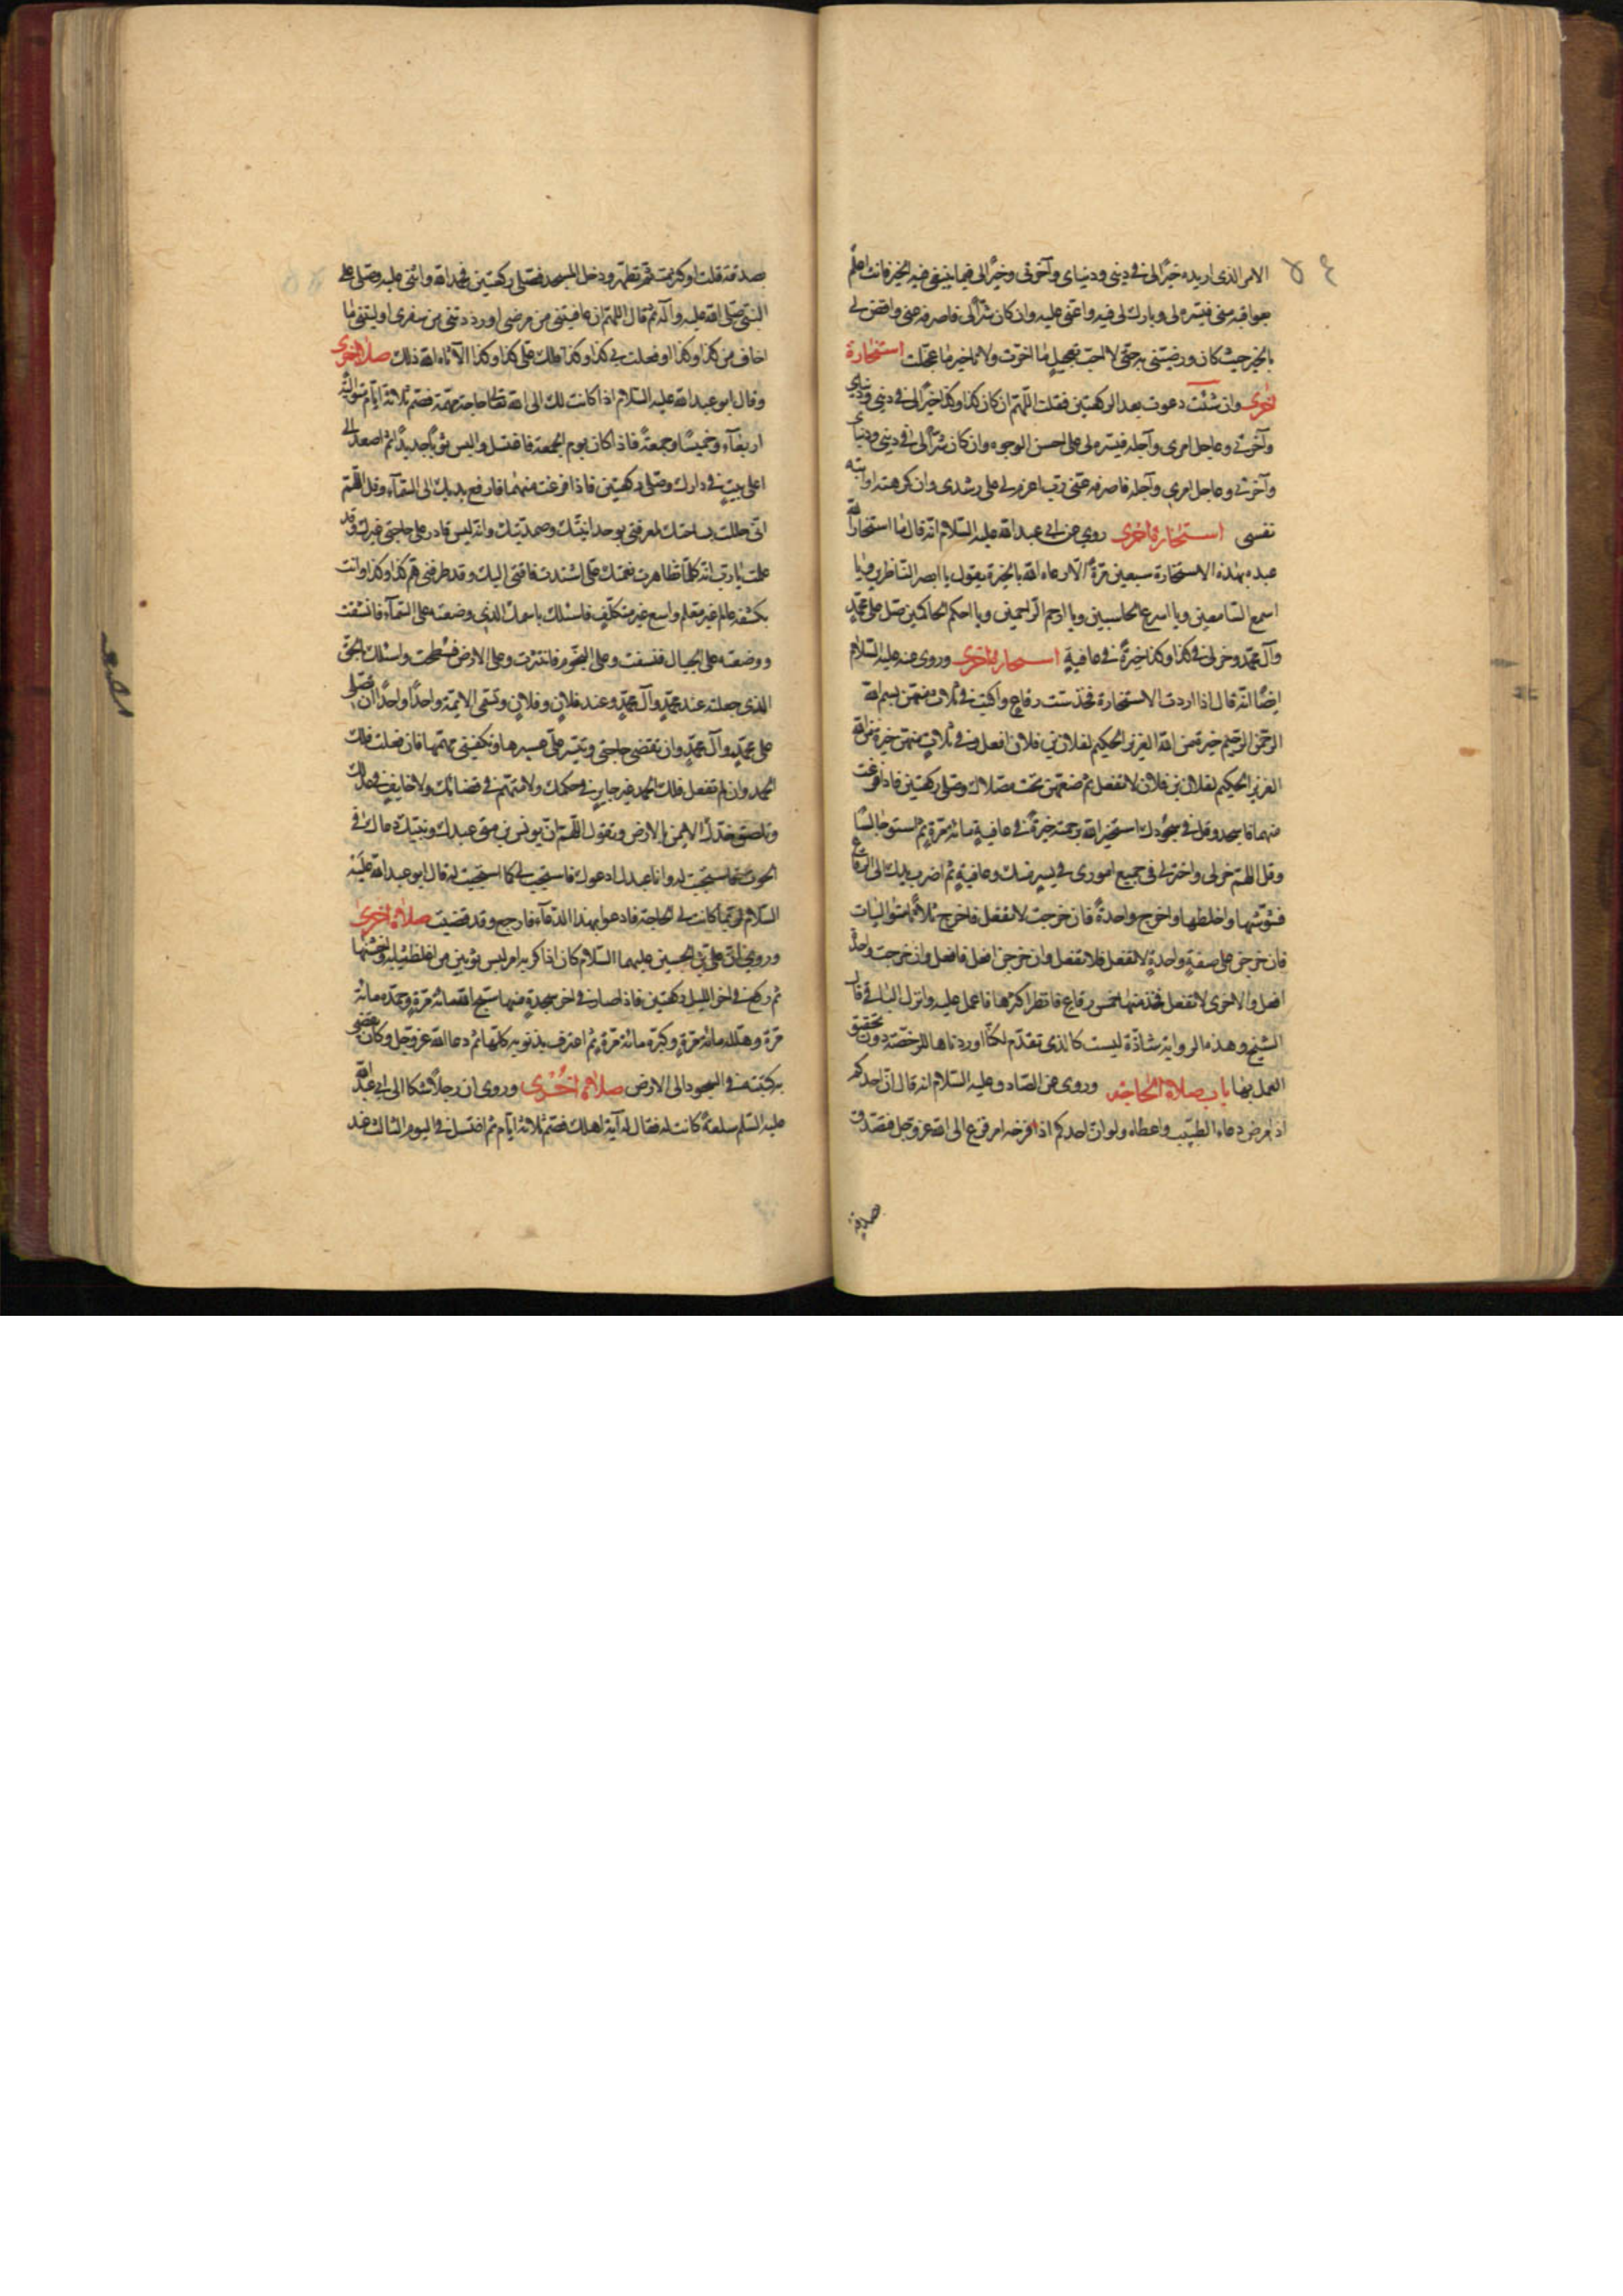 الامر الذى اريده خيرًا لى فى دينى ودنياى وآخرتى وخيرًا لى فيما ينبغى فيه الخير فانت اعلم
بعواقبه منى فيسّره لى وبارك لى فيه واعنّى عليه وان كان شرًّا لى فاصرفه عنى واقض لى
بالخير حيث كان ورضّنى به حتّى لا احبّ تعجيل ما اخّرت ولا تاخير ما عجّلت استخارة
اخرى وان شئت دعوت بعد الركعتين فقلت اللّهمّ ان كان كذا وكذا خيرًا لى فى دينى ودنياى
وآخرتى وعاجل امرى وآجله فيسّره لى على احسن الوجوه وان كان شرًّا لى فى دينى ودنياى
وآخرتى وعاجل امرى وآجله فاصرفه عنّى ربّ اعزم لى على رشدى وان كرهته او ابته
نفسى استخارة اخرى روى عن ابى عبد الله عليه السّلام انّه قال ما استخار الله
عبد بهذه الاستخارة سبعين مرّة الّا رماه الله بالخيرة يقول يا ابصر النّاظرين ويا
اسمع السّامعين ويا اسرع الحاسبين ويا ارحم الرّاحمين ويا احكم الحاكمين صلّ على محمّدٍ
وآل محمّد وخر لى فى كذا وكذا خيرةً فى عافيةٍ استخارة اخرى وروى عنه عليه السّلام
ايضًا انّه قال اذا اردت الاستخارة فخذ ستّ رقاعٍ واكتب فى ثلاث منهنّ بسم الله
الرّحمن الرّحيم خيرة من الله العزيز الحكيم لفلان بن فلان افعل وفى ثلاثٍ منهنّ خيرة من الله
العزيز الحكيم لفلان بن فلان لا تفعل ثم ضعهنّ تحت مصلّاك وصلّ ركعتين فاذا فرغت
منهما فاسجد وقل فى سجودك استخير الله برحمته خيرةً فى عافيةٍ مائة مرّةٍ ثم استو جالسًا
وقل اللّهمّ خر لى واختر لى فى جميع امورى فى يسرٍ منك وعافيةٍ ثم اضرب بيدك الى الرقاع
فشوّشها واخلطها واخرج واحدةً فان خرجت لا تفعل فاخرج ثلاثًا متواليات
فان خرجن على صفةٍ واحدةٍ لا تفعل فلا تفعل وان خرجن افعل فافعل وان خرجت واحدةٌ
افعل والاخرى لا تفعل فخذ منها خمس رقاع فانظر اكثرها فاعمل عليه واترك الباقى قال
الشيخ وهذه الرواية شاذّة ليست كالذى تقدّم لكنّا اوردناها للرخصة دون تحقيق
العمل بها باب صلاة الحاجة وروى عن الصّادق عليه السّلام انه قال انّ احدكم
اذا مرض دعاء الطبيب واعطاه ولو ان احدكم اذا فزخه امر فزع الى الله عزّ وجلّ فتصدّق
صدقة
صدقة قلت او كثرت ثم تطهّر ودخل المسجد فصلّى ركعتين فحمد الله واثنى عليه وصلّى على
النبىّ صلّى الله عليه وآله ثم قال اللهمّ ان عافيتنى من مرضى او رددتنى من سفرى او كفيتنى ما
اخاف من كذا وكذا او فعلت بى كذا وكذا فلك علىّ كذا وكذا الّا آتاه الله ذلك صلاة اخرى
وقال ابو عبد الله عليه السّلام اذا كانت لك الى الله تعالى حاجة مهمّة فصم ثلاثة ايّام متوالية
اربعآء وخميسًا وجمعةً فاذا كان يوم الجمعة فاغتسل والبس ثوبًا جديدًا ثم اصعد الى
اعلى بيتٍ فى دارك وصلّ ركعتين فاذا فرغت منهما فارفع يديك الى السّمآء وقل اللّهمّ
انّى حللت بساحتك لمعرفتى بوحدانيّتك وصمديّتك وانّه ليس قادر على حاجتى غيرك وقد
علمت يا ربّ انّه كلّما تظاهرت نعمتك علىّ اشتدت فاقتى اليك وقد طرقنى همّ كذا وكذا وانت
بكشفه عالم غير معلم واسع غير متكلّفٍ فاسئلك باسمك الذى وضعته على السّمآء فانشقّت
ووضعته على الجبال فنسفت وعلى النجوم فانتثرت وعلى الارض فسطحت واسئلك بالحقّ
الذى جعلته عند محمّدٍ وآل محمّدٍ وعند فلانٍ وفلانٍ وتسمّى الائمّة واحدًا واحدًا ان تصلّى
على محمّدٍ وآل محمّدٍ وان تقضى حاجتى وتيسّر علىّ عسيرها وتكفينى مهمّها فان فعلت فلك
الحمد وان لم تفعل فلك الحمد غير جايرٍ فى حكمك ولا متّهمٍ فى قضائك ولا خايفٍ فى عدلك
وتلصق خدّك الايمن بالارض وتقول اللّهمّ انّ يونس بن متى عبدك ونبيّك دعاك فى
الحوت فاستجبت له وانا عبدك ادعوك فاستجب لى كما استجبت له قال ابو عبد الله عليه
السّلام لربّما كانت لى الحاجة فادعو بهذا الدّعآء فارجع وقد قضيت صلاة اخرى
وروى انّ علىّ بن الحسين عليهما السّلام كان اذا كربه امر لبس ثوبين من اغلظ ثيابه واخشنها
ثم ركع فى اخر الليل ركعتين فاذا صار فى اخر سجدةٍ منهما سبّح الله مائة مرّةٍ وحمّده مائة
مرّة وهلّله مائة مرّةٍ وكبّره مائة مرّةٍ ثم اعترف بذنوبه كلّها ثم دعا الله عزّ وجلّ وكان يفضى
بركبتيه فى السجود الى الارض صلاة اخرى وروى ان رجلًا شكا الى ابى عبد الله
عليه السّلم سلعةً كانت له فقال له آية اهلك فصم ثلاثة ايّام ثم اغتسل فى اليوم الثالث عند